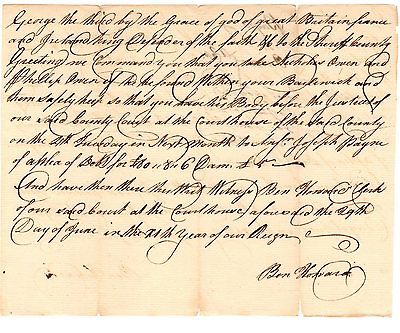 George the third by the Grace of god of great Brittain france
and Ireland King Defender of the faith &c to the Sheriff County
Greeting we Command you that you take Nicholas Owen and
Phillip Owen if to be found Within your Bayliwick and
them Safely keep so that you have his Body before the Justices of
our said County Court at the Courthouse of the Said County
on the 4th Tuesday in Next Month to Ansr Joseph Payne
of a plea of Debt for Dam
And have then there this Writ Witness Ben Howard Clerk
of our said Court at the Courthouse aforesaid the 29th
Day of June in the Year of our Reign
Ben Howard